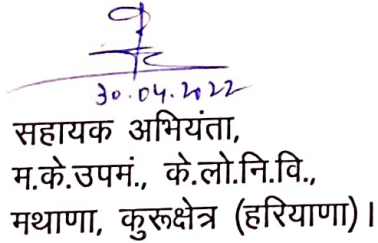 30.04.2022
सहायक अभियंता,
म.के.उपमं., के.लो.नि.वि.,
मथाणा, कुरूक्षेत्र (हरियाणा)।